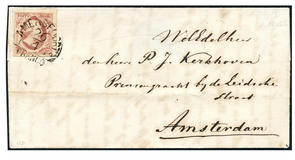 WelEdelheer
den heer P. J. Kerkhoven
Prinsengracht bij de Leidsche
Straat
Amsterdam